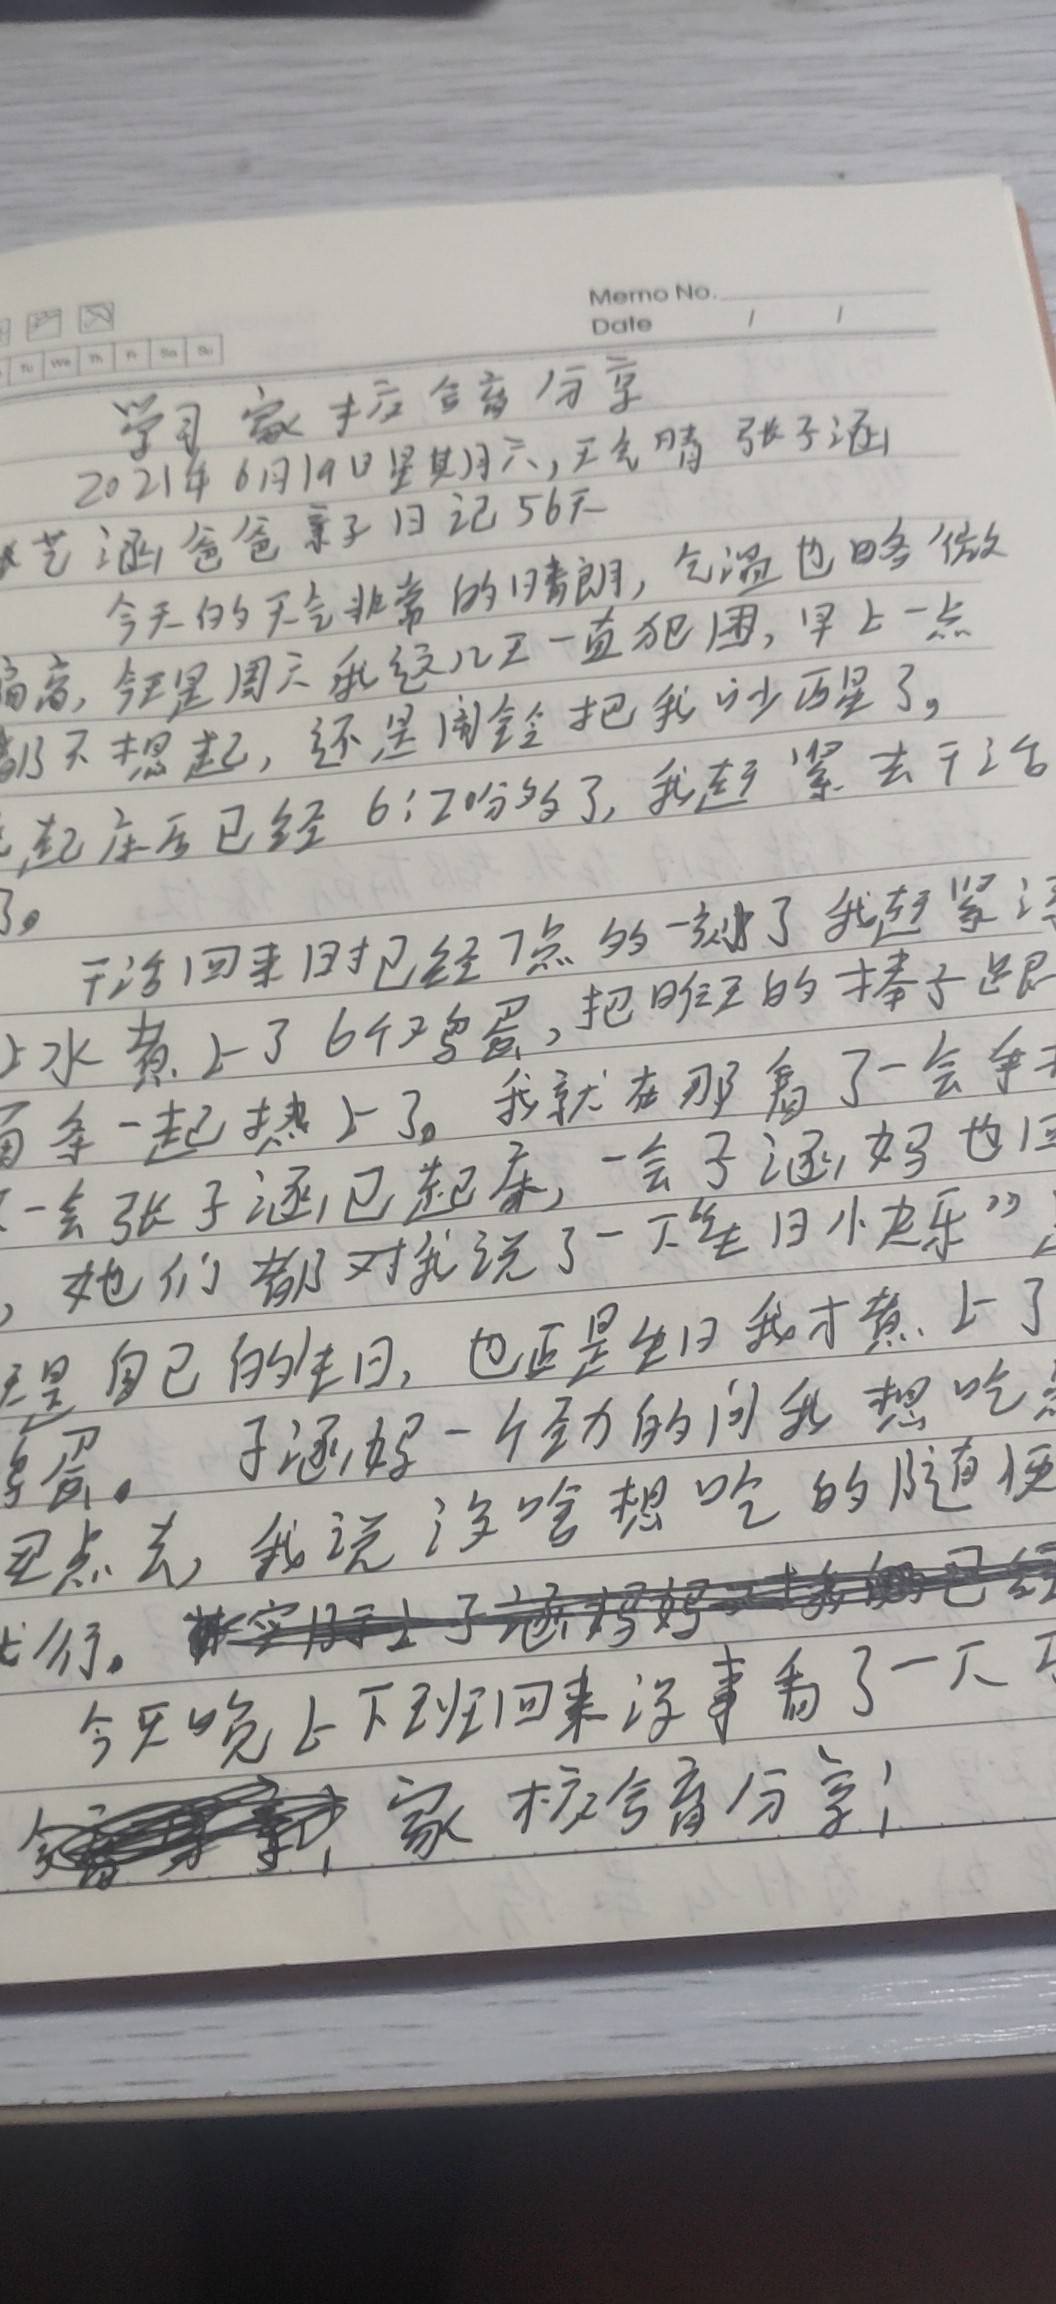 Memo No.
Date / /
Tu We Th Fr Sa Su
学习家校合育分享
2021年6月19日星期六,天气晴 张子涵
艺涵爸爸亲子日记56天
今天的天气非常的晴朗,气温也略微
偏高,今天是周六我这几天一直犯困,早上一点
都不想起,还是闹铃把我吵醒了。
起床后已经6:20分多了,我赶紧去干活
了。
干活回来时已经7点的一刻了我赶紧
上水煮上了6个鸡蛋,把昨天的棒子跟
面条一起热上了。我就在那看了一会手
不一会张子涵已起床,一会子涵妈也回
,她们都对我说了一下“生日快乐”
天是自己的生日,也正是生日我才煮上了
鸡蛋。 子涵妈一个劲的问我想吃
买点去,我说没啥想吃的随便
就行。
今天晚上下班回来没事看了一下
家校合育分享;